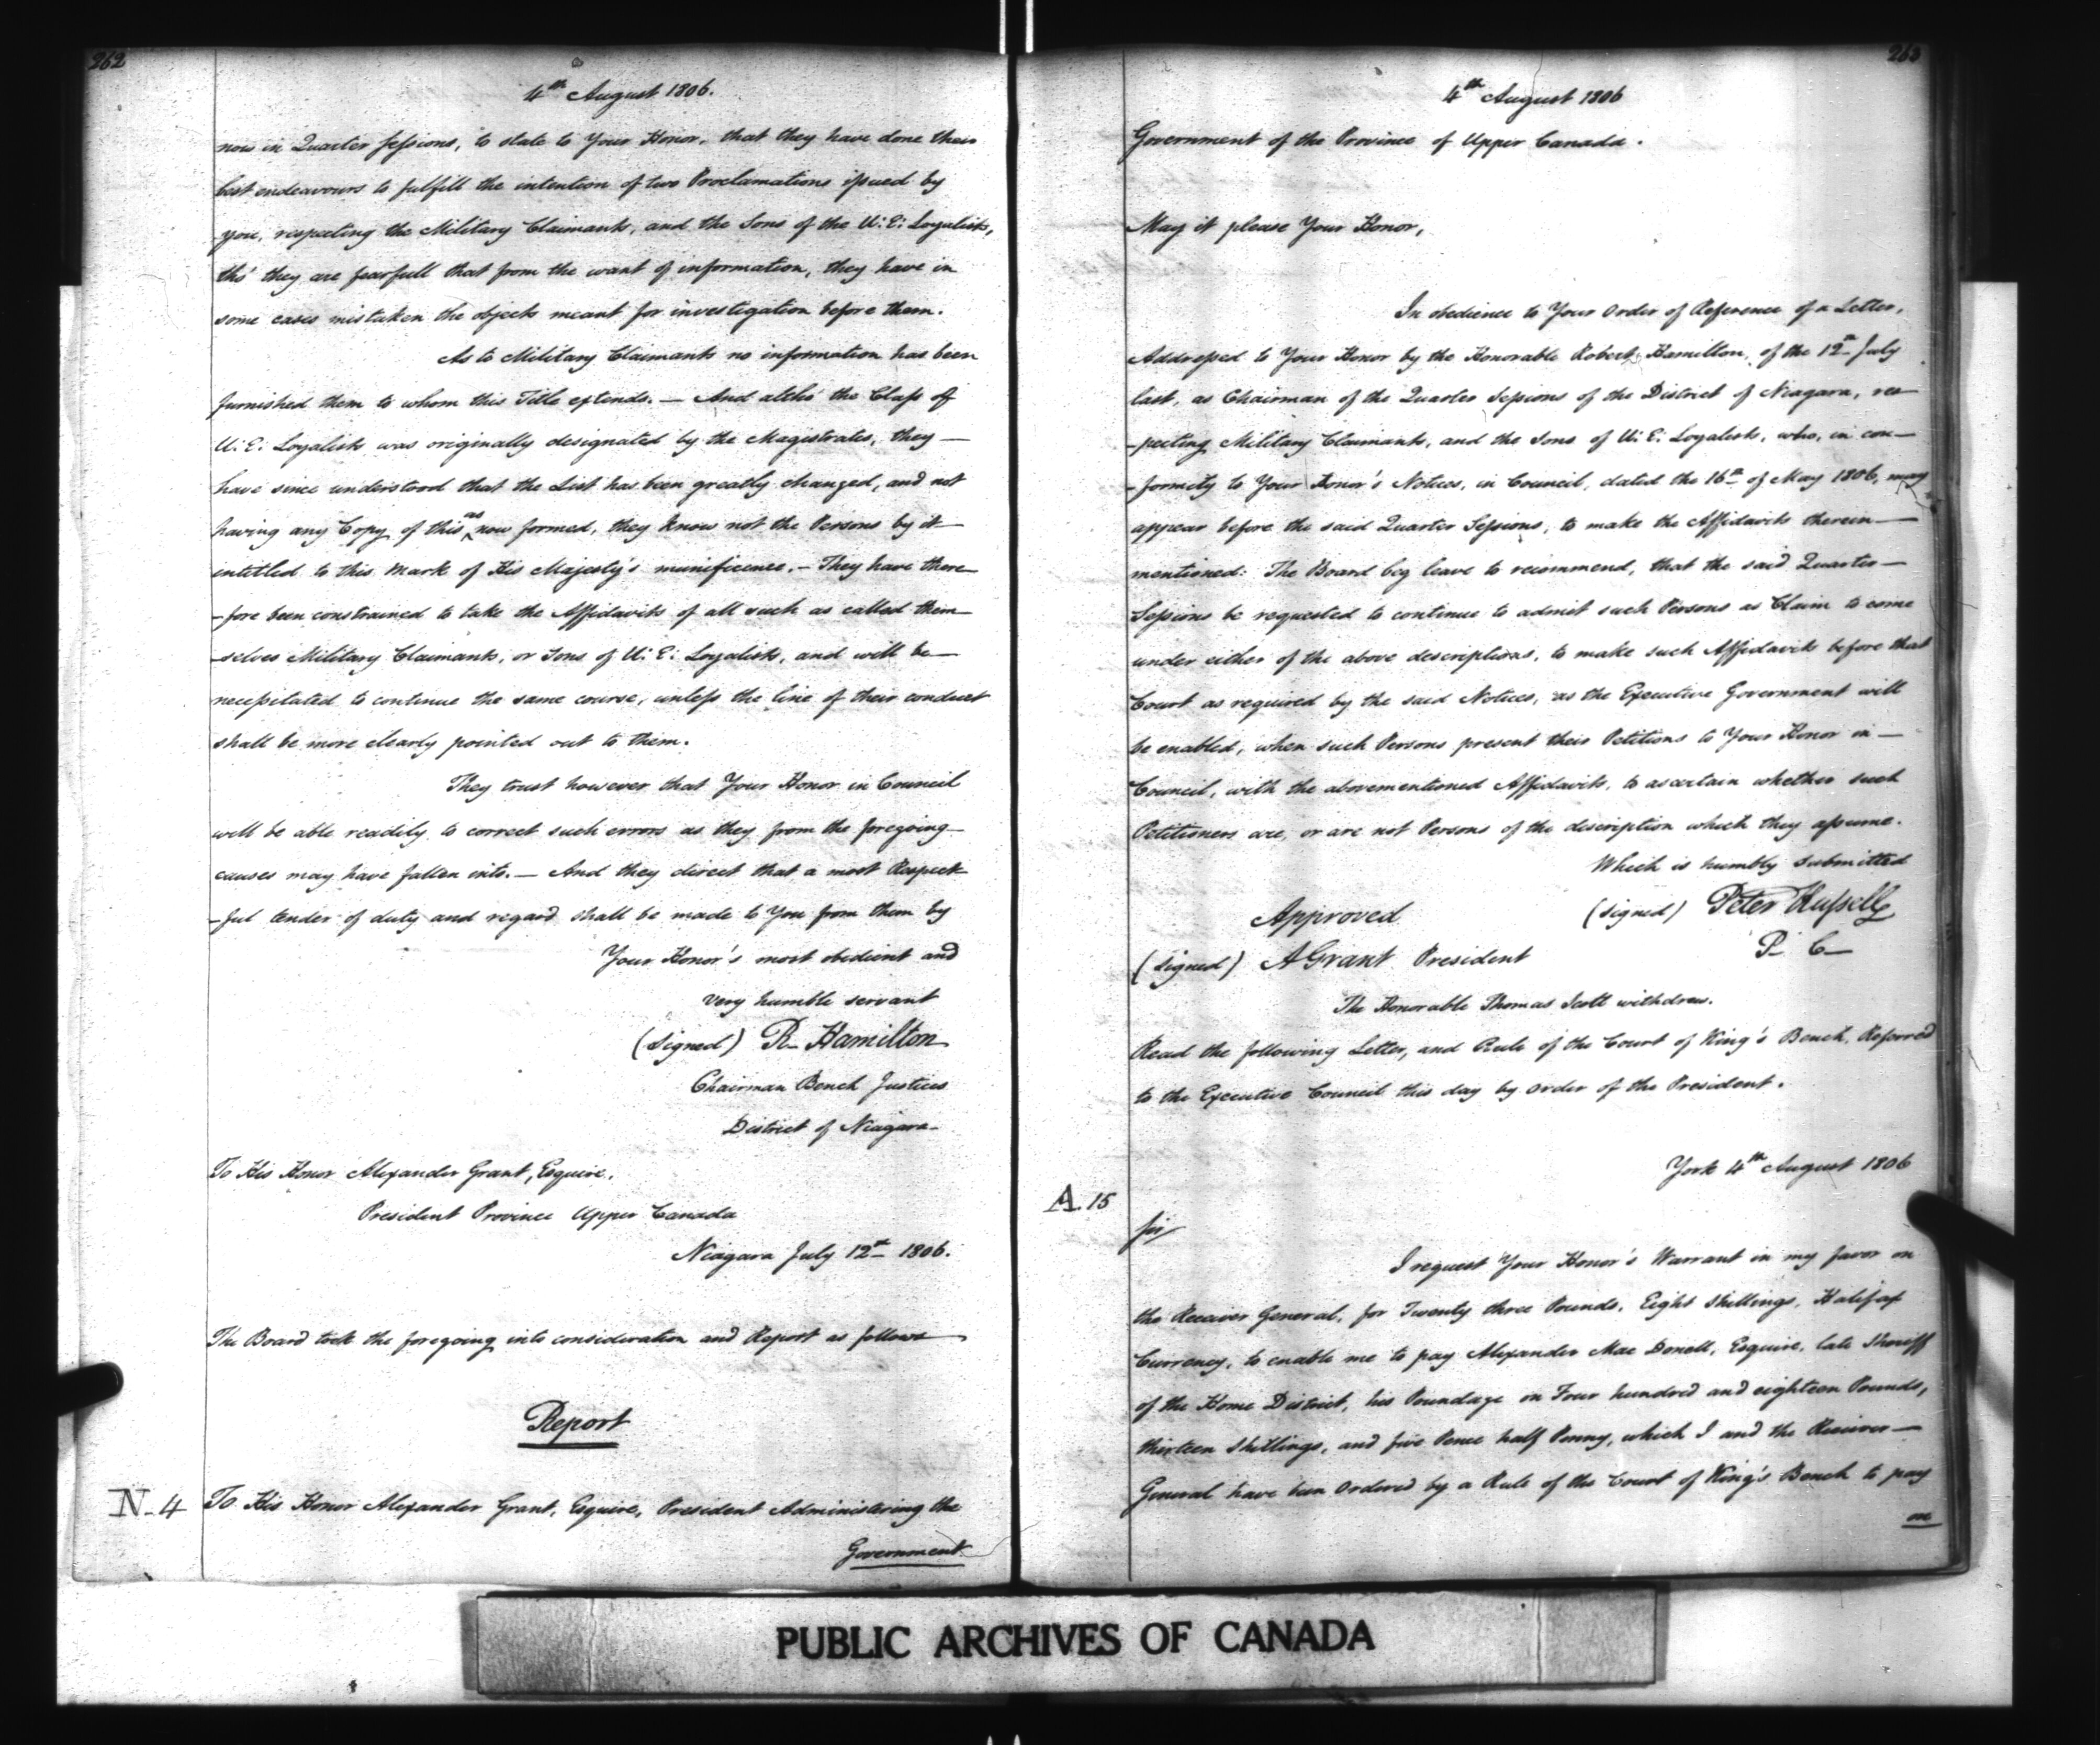 262
4th August 1806.
now in Quarter Sessions, to state to Your Honor, that they have done their
best endeavours to fulfill the intention of two Proclamations issued by
you, respecting the Military Claimants, and the Sons of the U: E: Loyalists,
tho' they are fearfull that from the want of information, they have in
some cases mistaken the objects meant for investigation before them.
As to Military Claimants no information has been
furnished them to whom this Title extends. — And altho' the Class of
U: E: Loyalists was originally designated by the Magistrates, they —
have since understood that the List has been greatly changed, and not
having any Copy of this as now formed, they know not the Persons by it
intitled to this Mark of His Majesty's munificence. — They have there
-fore been constrained to take the Affidavits of all such as called them
-selves Military Claimants, or Sons of U: E: Loyalists, and will be —
necessitated to continue the same course, unless the line of their conduct
shall be more clearly pointed out to them.
They trust however that Your Honor in Council
will be able readily to correct such errors as they from the foregoing
causes may have fallen into. — And they direct that a most Respect
-ful tender of duty and regard shall be made to You from them by
Your Honor's most obedient and
very humble servant
(signed) R. Hamilton
Chairman Bench Justices
District of Niagara.
To His Honor Alexander Grant, Esquire.
President Province Upper Canada
Niagara July 12th 1806.
The Board took the foregoing into consideration and Report as follows
Report
N. 4 To His Honor Alexander Grant, Esquire, President Administering the
Government
263
4th August 1806
Government of the Province of Upper Canada.
May it please Your Honor,
In obedience to Your Order of Reference of a Letter,
Addressed to Your Honor by the Honorable Robert Hamilton, of the 12th July
last, as Chairman of the Quarter Sessions of the District of Niagara, res
-pecting Military Claimants, and the Sons of U: E: Loyalists, who, in con—
-formity to Your Honor's Notices, in Council, dated the 16th of May 1806, may
appear before the said Quarter Sessions, to make the Affidavits therein —
mentioned: The Board beg leave to recommend, that the said Quarter —
Sessions be requested to continue to admit such Persons as Claim to come
under either of the above descriptions, to make such Affidavits before that
Court as required by the said Notices, as the Executive Government will
be enabled, when such Persons present their Petitions to Your Honor in —
Council, with the abovementioned Affidavits, to ascertain whether such
Petitioners are, or are not Persons of the description which they assume.
Which is humbly submitted
Approved (signed) Peter Russell
(signed) A Grant President P. C—
The Honorable Thomas Scott withdrew.
Read the following Letter, and Rule of the Court of King's Bench, Referred
to the Executive Council this day by order of the President.
York 4th August 1806
A. 15
Sir
I request Your Honor's Warrant in my favor on
the Receiver General, for Twenty three Pounds, Eight Shillings, Halifax
Currency, to enable me to pay Alexander Mac Donell, Esquire, late Sheriff
of the Home District, his Poundage on Four hundred and eighteen Pounds,
thirteen Shillings, and five Pence half Penny, which I and the Receiver —
General have been Ordered by a Rule of the Court of King's Bench to pay
on
PUBLIC ARCHIVES OF CANADA